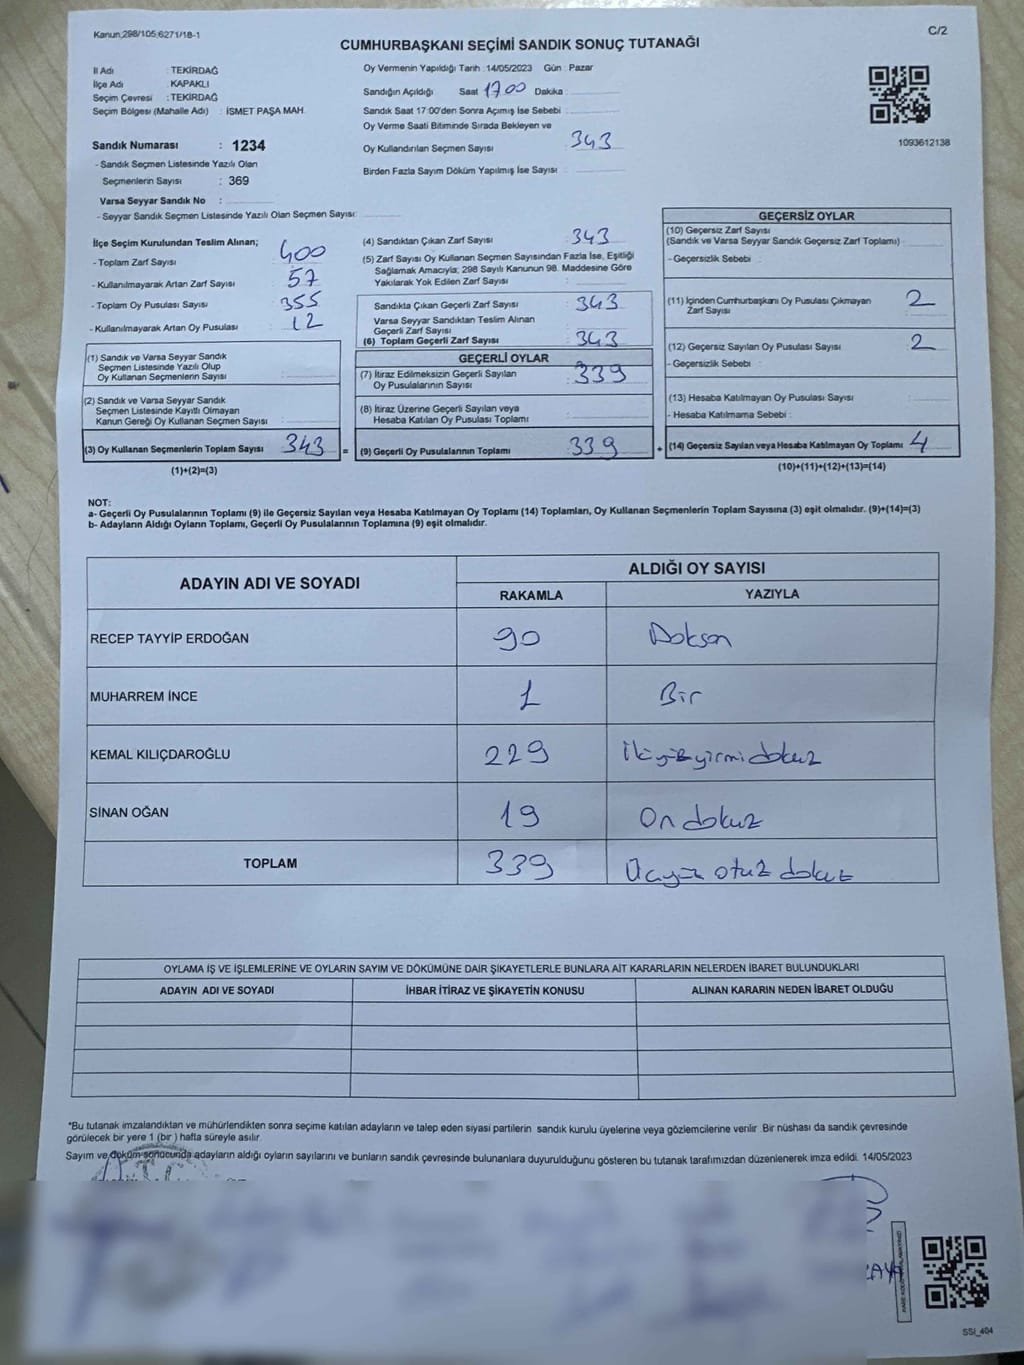 Kanun;298/105;6271/18-1
C/2
CUMHURBAŞKANI SEÇİMİ SANDIK SONUÇ TUTANAĞI
İl Adı : TEKİRDAĞ
İlçe Adı : KAPAKLI
Seçim Çevresi : TEKİRDAĞ
Seçim Bölgesi (Mahalle Adı) : İSMET PAŞA MAH.
Sandık Numarası : 1234
- Sandık Seçmen Listesinde Yazılı Olan
Seçmenlerin Sayısı : 369
Varsa Seyyar Sandık No :
- Seyyar Sandık Seçmen Listesinde Yazılı Olan Seçmen Sayısı:
Oy Vermenin Yapıldığı Tarih :14/05/2023 Gün : Pazar
Sandığın Açıldığı Saat 1700 Dakika :
Sandık Saat 17:00'den Sonra Açımış İse Sebebi :
Oy Verme Saati Bitiminde Sırada Bekleyen ve
Oy Kullandırılan Seçmen Sayısı : 343
Birden Fazla Sayım Döküm Yapılmış İse Sayısı :
1093612138
İlçe Seçim Kurulundan Teslim Alınan;
- Toplam Zarf Sayısı : 400
- Kullanılmayarak Artan Zarf Sayısı : 57
- Toplam Oy Pusulası Sayısı : 355
- Kullanılmayarak Artan Oy Pusulası : 12
(1) Sandık ve Varsa Seyyar Sandık
Seçmen Listesinde Yazılı Olup
Oy Kullanan Seçmenlerin Sayısı :
(2) Sandık ve Varsa Seyyar Sandık
Seçmen Listesinde Kayıtlı Olmayan
Kanun Gereği Oy Kullanan Seçmen Sayısı :
(3) Oy Kullanan Seçmenlerin Toplam Sayısı : 343 =
(1)+(2)=(3)
(4) Sandıktan Çıkan Zarf Sayısı : 343
(5) Zarf Sayısı Oy Kullanan Seçmen Sayısından Fazla İse, Eşitliği
Sağlamak Amacıyla; 298 Sayılı Kanunun 98. Maddesine Göre
Yakılarak Yok Edilen Zarf Sayısı :
Sandıkta Çıkan Geçerli Zarf Sayısı : 343
Varsa Seyyar Sandıktan Teslim Alınan
Geçerli Zarf Sayısı :
(6) Toplam Geçerli Zarf Sayısı : 343
GEÇERLİ OYLAR
(7) İtiraz Edilmeksizin Geçerli Sayılan
Oy Pusulalarının Sayısı : 339
(8) İtiraz Üzerine Geçerli Sayılan veya
Hesaba Katılan Oy Pusulası Toplamı :
(9) Geçerli Oy Pusulalarının Toplamı : 339 +
GEÇERSİZ OYLAR
(10) Geçersiz Zarf Sayısı
(Sandık ve Varsa Seyyar Sandık Geçersiz Zarf Toplamı) :
- Geçersizlik Sebebi :
(11) İçinden Cumhurbaşkanı Oy Pusulası Çıkmayan
Zarf Sayısı : 2
(12) Geçersiz Sayılan Oy Pusulası Sayısı : 2
- Geçersizlik Sebebi :
(13) Hesaba Katılmayan Oy Pusulası Sayısı :
- Hesaba Katılmama Sebebi :
(14) Geçersiz Sayılan veya Hesaba Katılmayan Oy Toplamı : 4
(10)+(11)+(12)+(13)=(14)
NOT:
a- Geçerli Oy Pusulalarının Toplamı (9) ile Geçersiz Sayılan veya Hesaba Katılmayan Oy Toplamı (14) Toplamları, Oy Kullanan Seçmenlerin Toplam Sayısına (3) eşit olmalıdır. (9)+(14)=(3)
b- Adayların Aldığı Oyların Toplamı, Geçerli Oy Pusulalarının Toplamına (9) eşit olmalıdır.
ADAYIN ADI VE SOYADI
ALDIĞI OY SAYISI
RAKAMLA YAZIYLA
RECEP TAYYİP ERDOĞAN 90 Doksan
MUHARREM İNCE 1 Bir
KEMAL KILIÇDAROĞLU 229 İkiyüzyirmidokuz
SİNAN OĞAN 19 On dokuz
TOPLAM 339 Üçyüz otuz dokuz
OYLAMA İŞ VE İŞLEMLERİNE VE OYLARIN SAYIM VE DÖKÜMÜNE DAİR ŞİKAYETLERLE BUNLARA AİT KARARLARIN NELERDEN İBARET BULUNDUKLARI
ADAYIN ADI VE SOYADI İHBAR İTİRAZ VE ŞİKAYETİN KONUSU ALINAN KARARIN NEDEN İBARET OLDUĞU
*Bu tutanak imzalandıktan ve mühürlendikten sonra seçime katılan adayların ve talep eden siyasi partilerin sandık kurulu üyelerine veya gözlemcilerine verilir. Bir nüshası da sandık çevresinde
görülecek bir yere 1 (bir ) hafta süreyle asılır.
Sayım ve döküm sonucunda adayların aldığı oyların sayılarını ve bunların sandık çevresinde bulunanlara duyurulduğunu gösteren bu tutanak tarafımızdan düzenlenerek imza edildi. 14/05/2023
SSİ_404